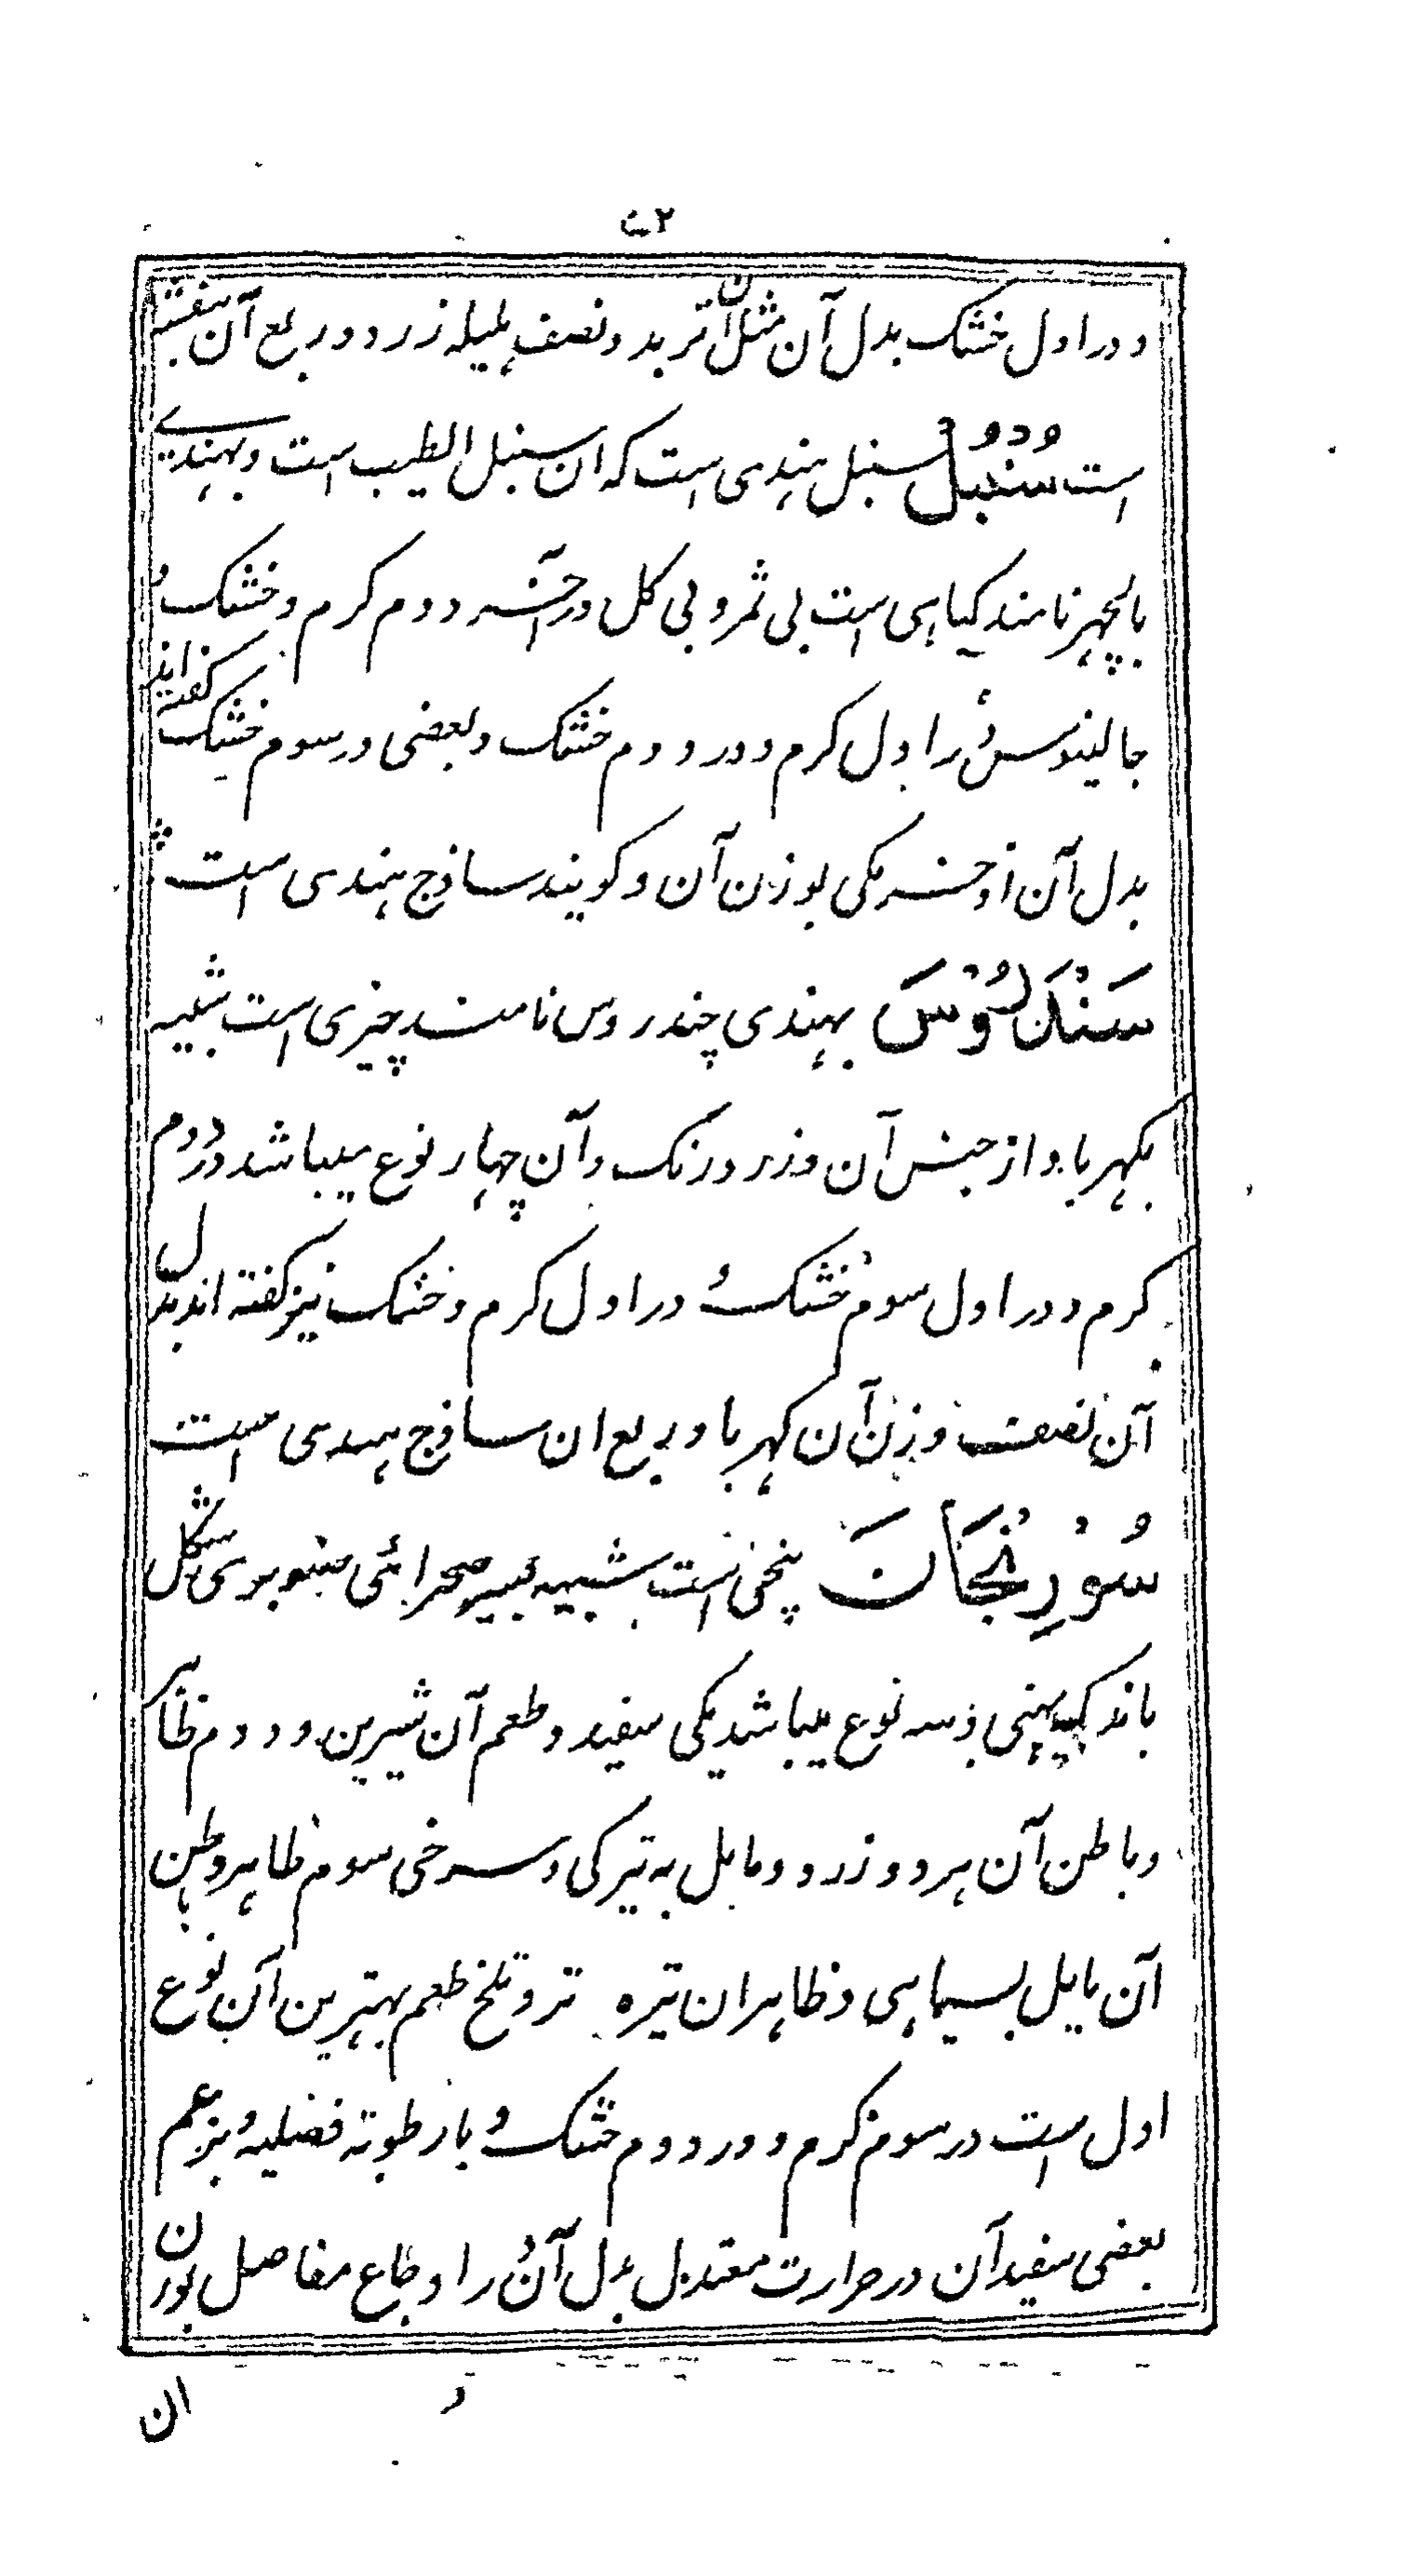 و در اول خشک بدل آن مثل آن تربد و نصف هلیله زرد و ربع آن بنفشه
است سُنبُل سنبل هندی است که ان سنبل الطیب است و بهندی
بالچهر نامند کیاهی است بی ثمر و بی کل در آخر دوم کرم و خشک و
جالینوس در اول کرم و در دوم خشک و بعضی در سوم خشک کفته اند
بدل آن اذخر مکی بوزن آن و کویند ساذج هندی است
سَندَرُوس بهندی چندروس نامند چیزی است شبیه
بکهربا و از جنس آن و زرد رنک و آن چهار نوع میباشد در دوم
کرم و در اول سوم خشک و در اول کرم و خشک نیز کفته اند بدل
آن نصف وزن آن کهربا و ربع ان ساذج هندی است
سُورِنجَان بیخی است شبیه بسیر صحرائی صنوبری شکل
باندک پهنی و سه نوع میباشد یکی سفید و طعم آن شیرین و دوم ظاهر
و باطن آن هر دو زرد و مایل به تیرکی و سرخی سوم ظاهر و باطن
آن مایل بسیاهی و ظاهر ان تیره تر و تلخ طعم بهترین آن نوع
اول است در سوم کرم و در دوم خشک و با رطوبة فضلیه و بزعم
بعضی سفید آن در حرارت معتدل بدل آن در اوجاع مفاصل بوزن
ان